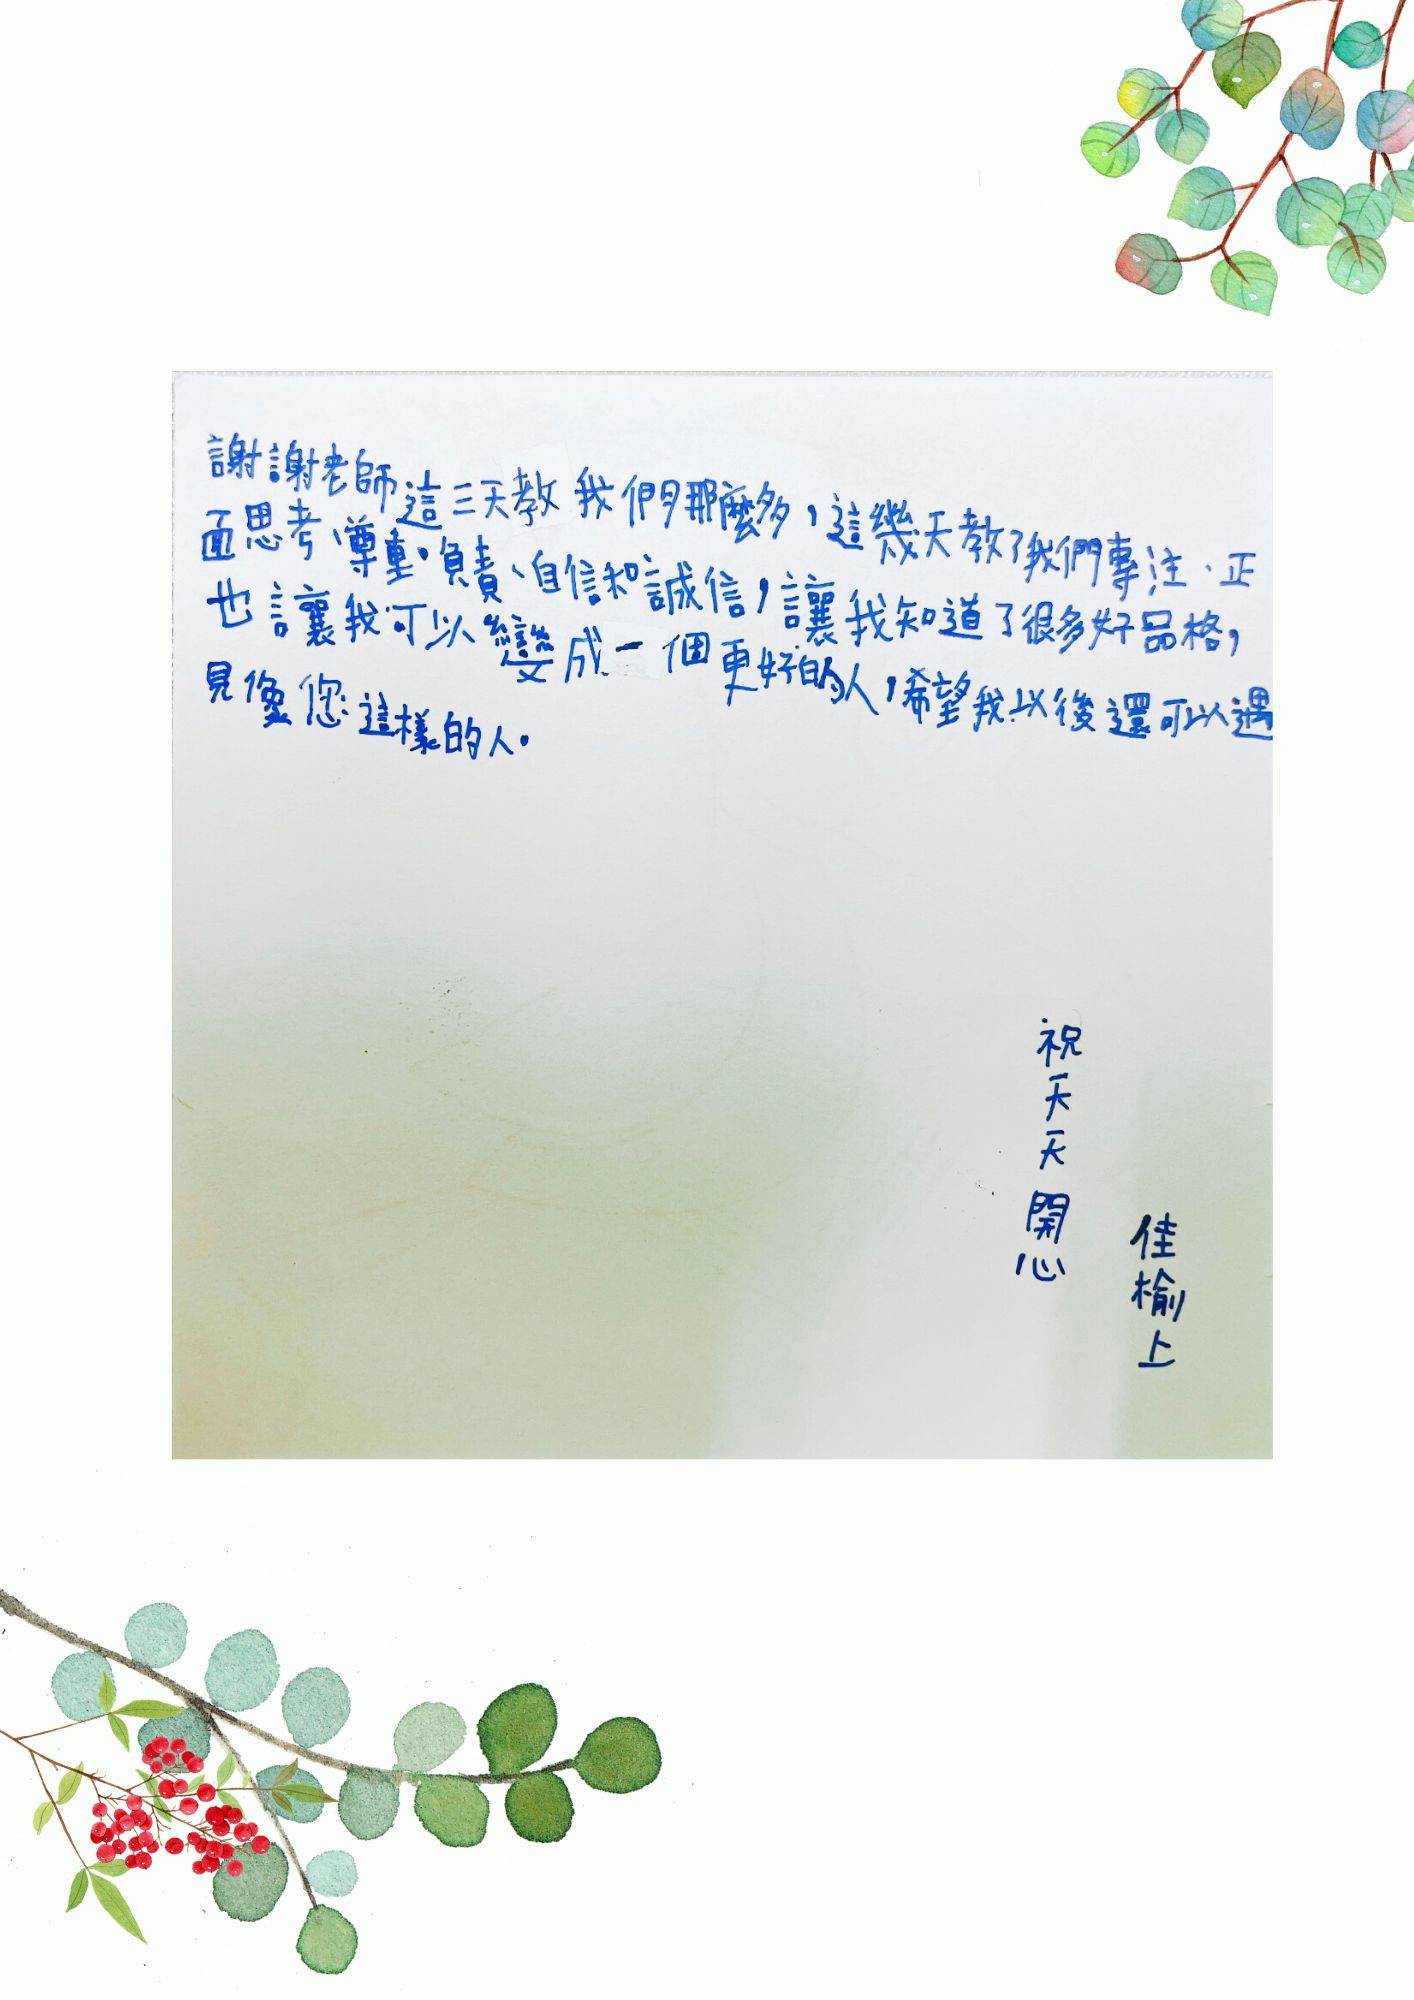 謝謝老師這三天教我們那麼多，這幾天教了我們專注、正
面思考、尊重、負責、自信和誠信，讓我知道了很多好品格，
也讓我可以變成一個更好的人，希望我以後還可以遇
見像您這樣的人。
祝天天開心
佳榆上